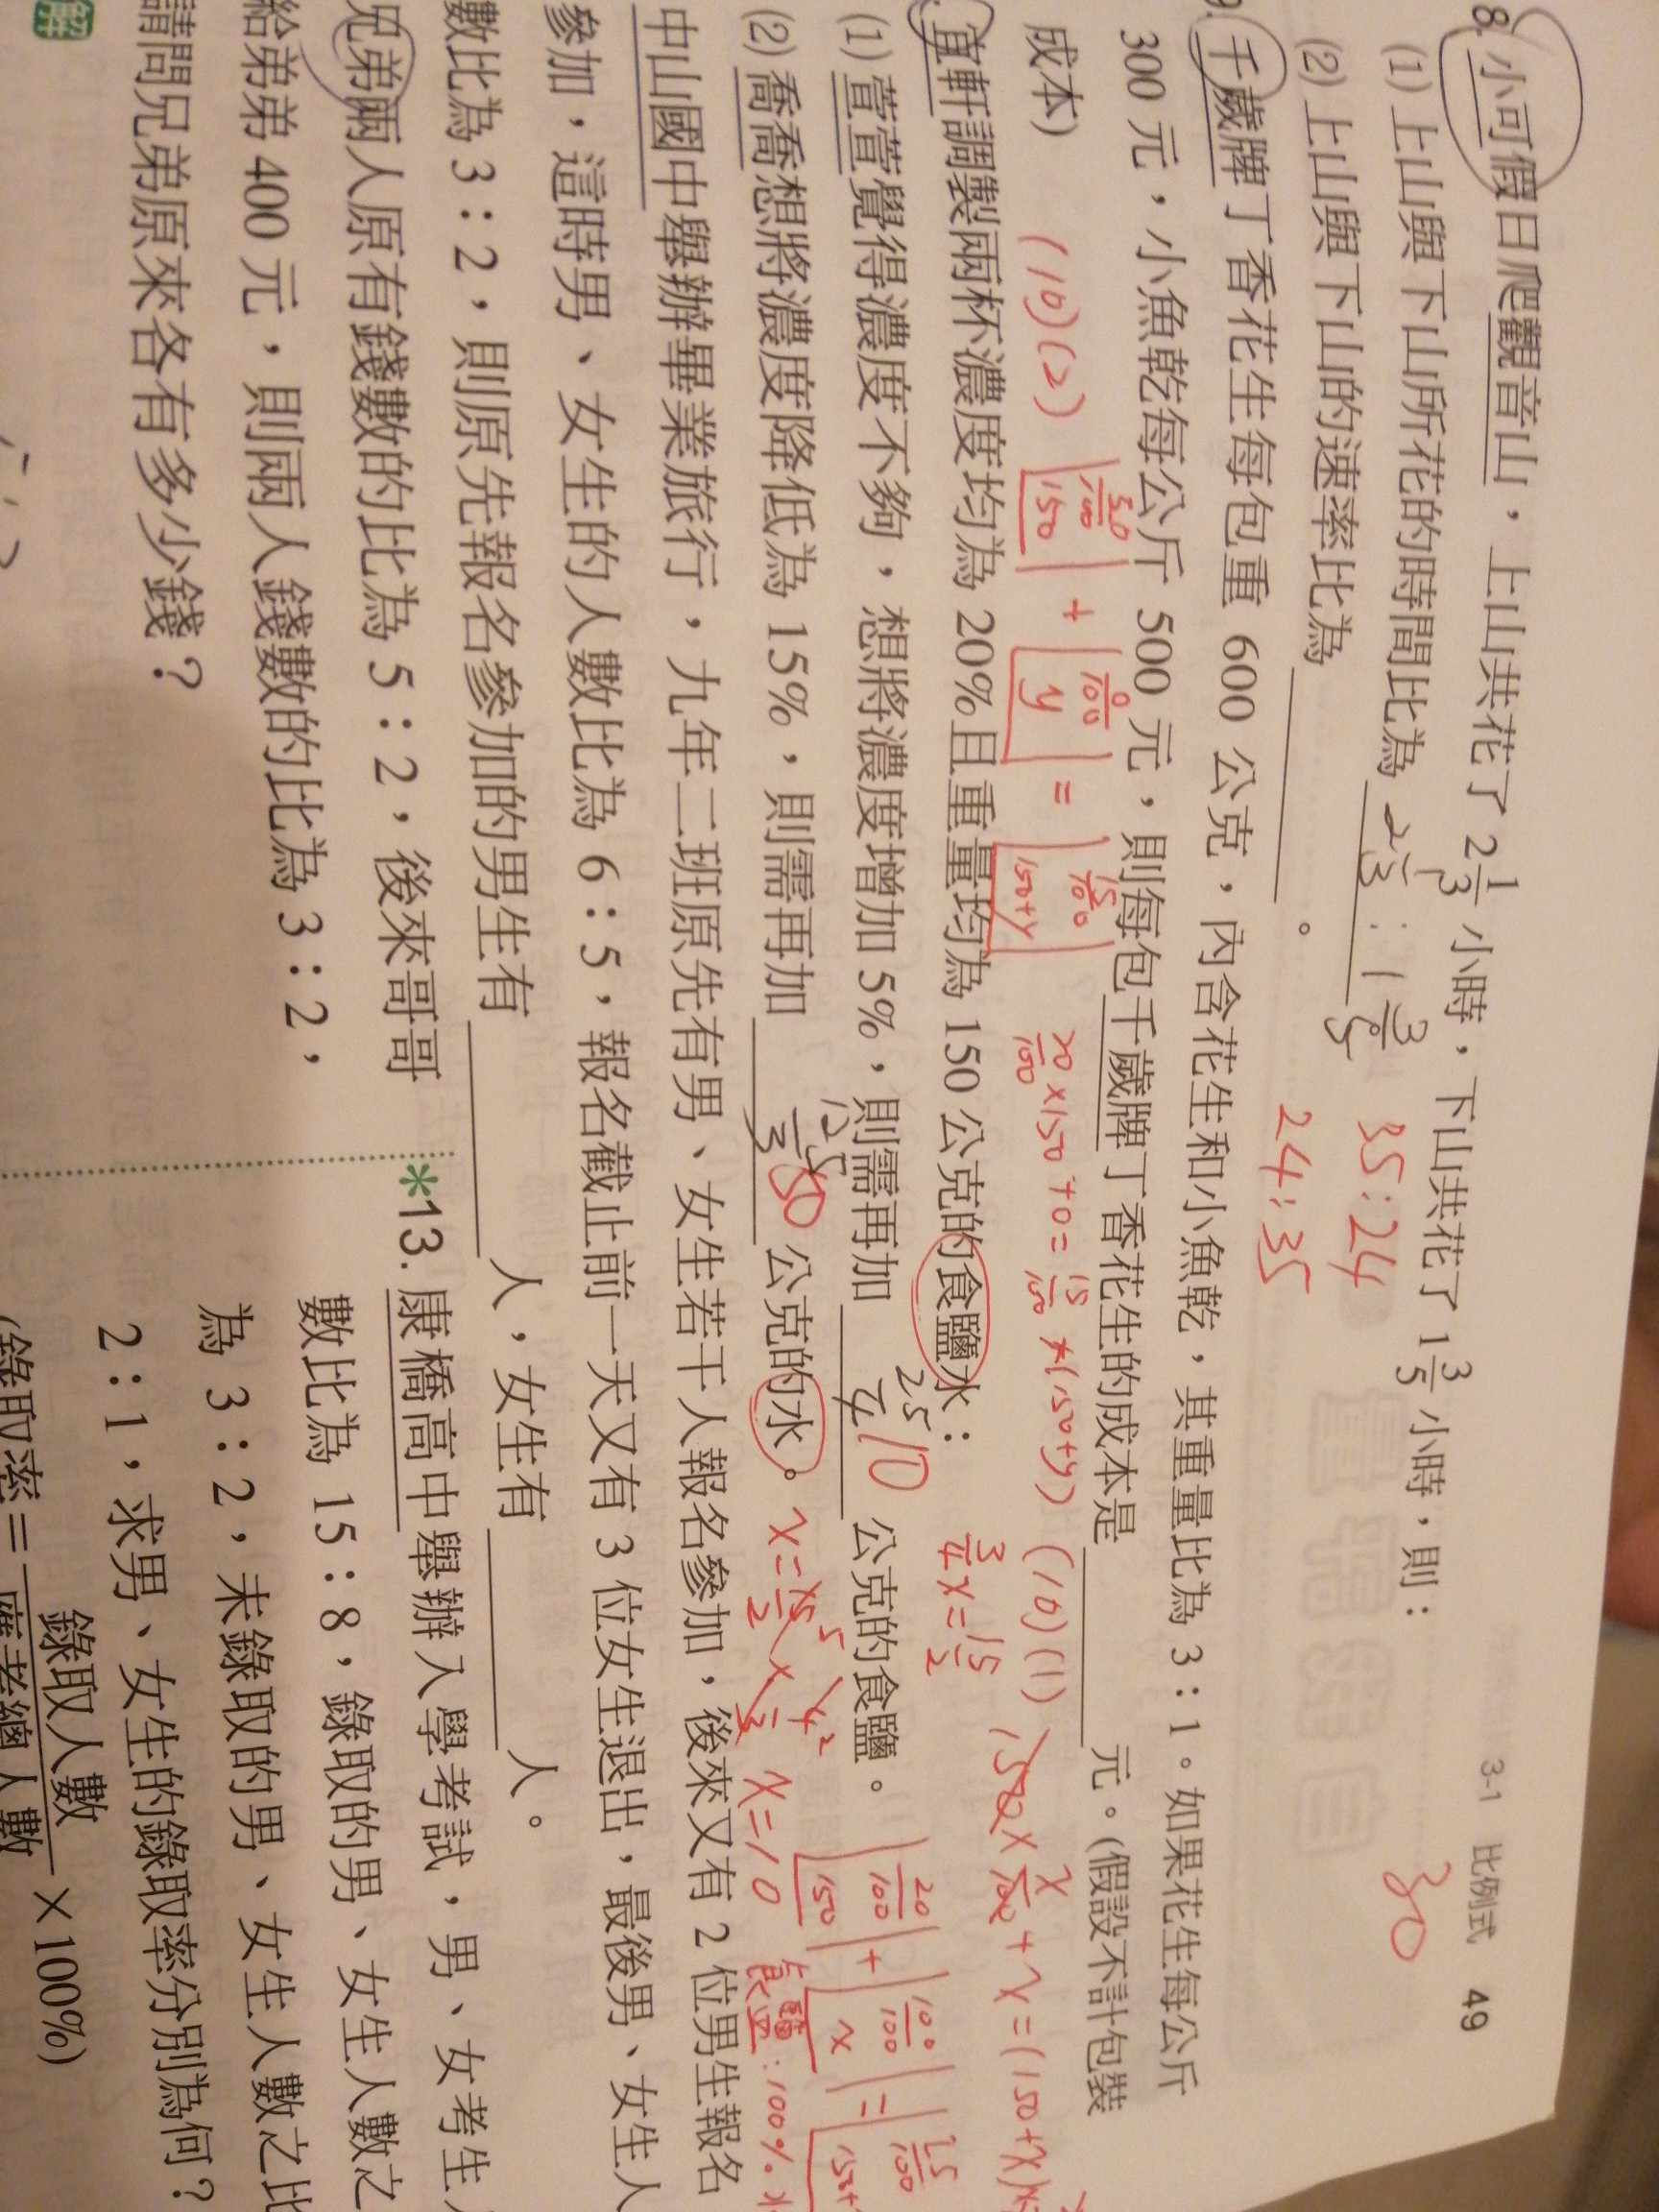 3-1 比例式 49
30
8. 小可假日爬觀音山，上山共花了 2 1/3 小時，下山共花了 1 3/5 小時，則：
(1) 上山與下山所花的時間比為 2 1/3 : 1 3/5 35:24
(2) 上山與下山的速率比為 。 24:35
9. 千歲牌丁香花生每包重 600 公克，內含花生和小魚乾，其重量比為 3：1。如果花生每公斤
300 元，小魚乾每公斤 500 元，則每包千歲牌丁香花生的成本是 元。(假設不計包裝
成本)
(10)(2) 150 + 0/100 y = 15/100 150+y
20/100 ×150+0= 15/100 ×(150+y)
(10)(1)
宜軒調製兩杯濃度均為 20%且重量均為 150 公克的食鹽水：
3/4 x = 15/2
(1) 萱萱覺得濃度不夠，想將濃度增加 5%，則需再加 10 公克的食鹽。
20/100 150 + 100/100 x = 25/100
(2) 喬喬想將濃度降低為 15%，則需再加 50 公克的水。
x=10
食鹽:100%
中山國中舉辦畢業旅行，九年二班原先有男、女生若干人報名參加，後來又有 2 位男生報名
參加，這時男、女生的人數比為 6：5，報名截止前一天又有 3 位女生退出，最後男、女生人
數比為 3：2，則原先報名參加的男生有 人，女生有 人。
兄弟兩人原有錢數的比為 5：2，後來哥哥
給弟弟 400 元，則兩人錢數的比為 3：2，
請問兄弟原來各有多少錢？
*13. 康橋高中舉辦入學考試，男、女考生
數比為 15：8，錄取的男、女生人數之
為 3：2，未錄取的男、女生人數之比
2：1，求男、女生的錄取率分別為何？
(錄取率= 錄取人數/應考總人數 ×100%)